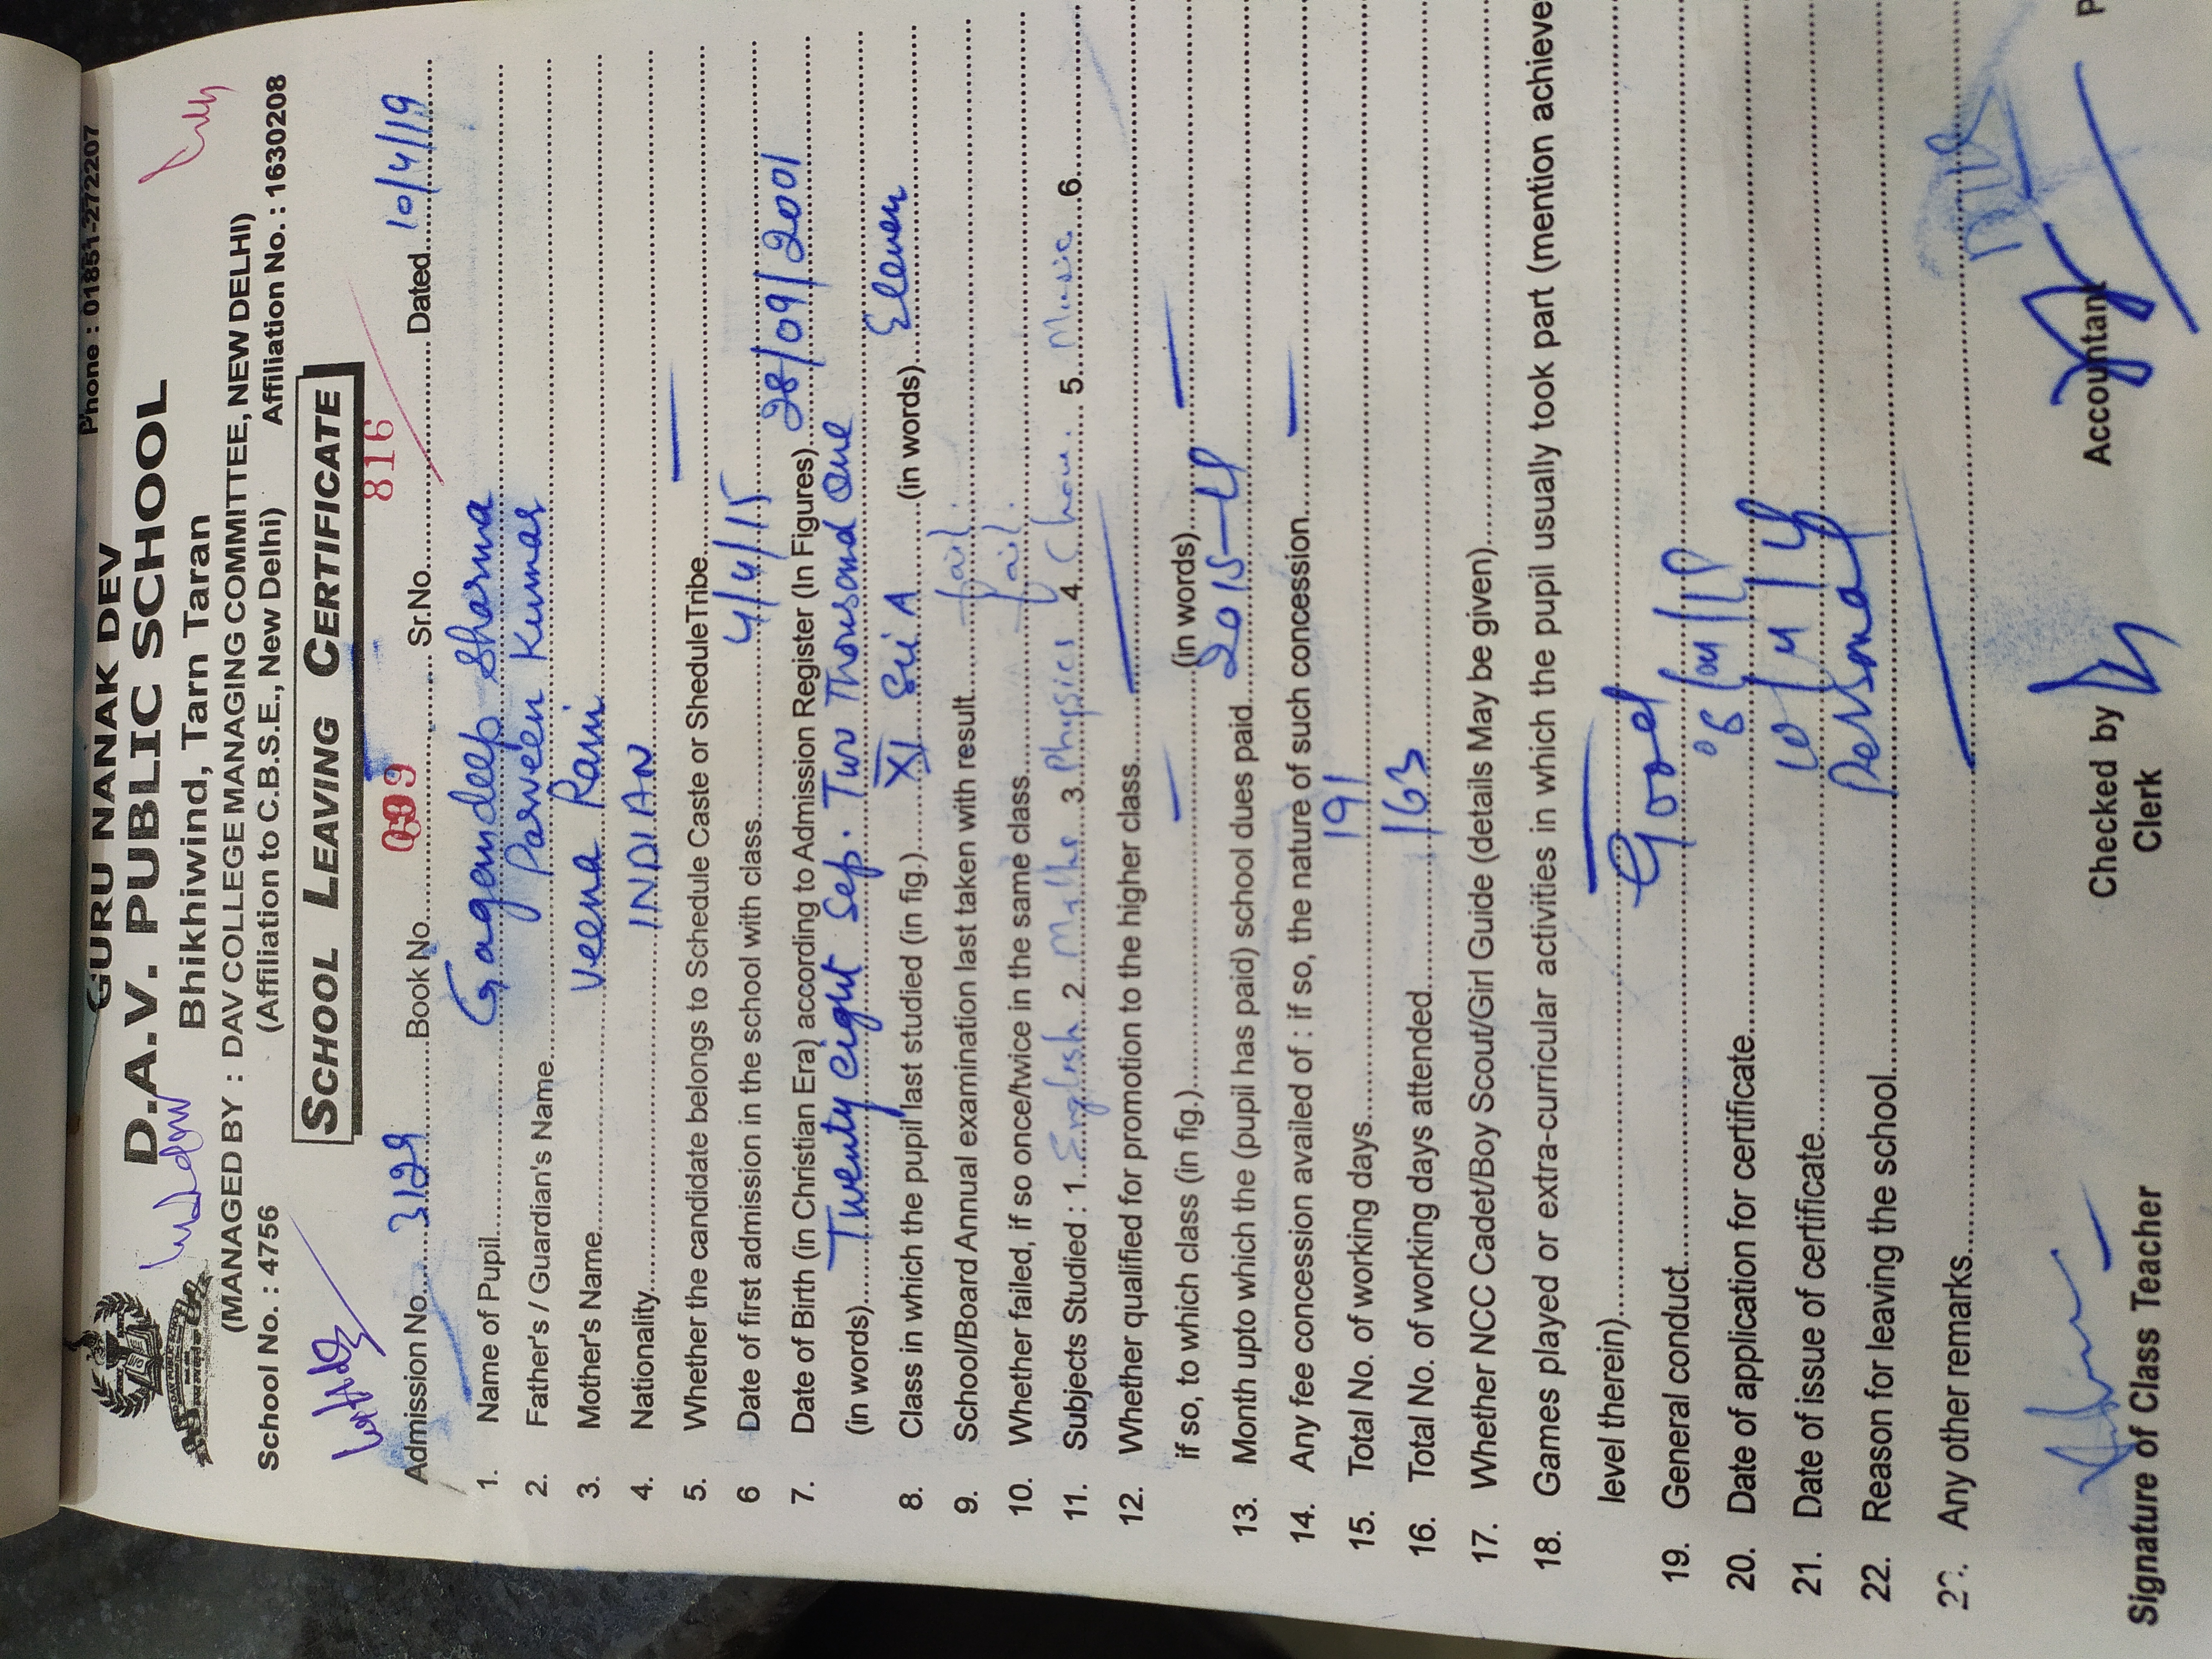 Phone : 01851-272207
GURU NANAK DEV
D.A.V. PUBLIC SCHOOL
Bhikhiwind, Tarn Taran
(MANAGED BY : DAV COLLEGE MANAGING COMMITTEE, NEW DELHI)
(Affiliation to C.B.S.E., New Delhi)
School No. : 4756 Affiliation No. : 1630208
SCHOOL LEAVING CERTIFICATE
Admission No. 3129 Book No. Sr.No. 816 Dated 10/4/19
1. Name of Pupil Gagandeep Sharma
2. Father's / Guardian's Name Parveen Kumar
3. Mother's Name Veena Rani
4. Nationality INDIAN
5. Whether the candidate belongs to Schedule Caste or SheduleTribe —
6 Date of first admission in the school with class 4/4/15
7. Date of Birth (in Christian Era) according to Admission Register (In Figures) 28/09/2001
(in words) Twenty eight Sep. Two Thousand One
8. Class in which the pupil last studied (in fig.) XI Sci A (in words) Eleven
9. School/Board Annual examination last taken with result fail.
10. Whether failed, if so once/twice in the same class fail.
11. Subjects Studied : 1. English 2. Maths 3. Physics 4. Chem. 5. Music 6.
12. Whether qualified for promotion to the higher class —
if so, to which class (in fig.) — (in words) —
13. Month upto which the (pupil has paid) school dues paid
14. Any fee concession availed of : if so, the nature of such concession —
15. Total No. of working days 191
16. Total No. of working days attended 163
17. Whether NCC Cadet/Boy Scout/Girl Guide (details May be given)
18. Games played or extra-curricular activities in which the pupil usually took part (mention achieve
level therein) —
19. General conduct Good
20. Date of application for certificate
21. Date of issue of certificate
22. Reason for leaving the school Personal
23. Any other remarks —
Signature of Class Teacher Checked by Accountant P
Clerk